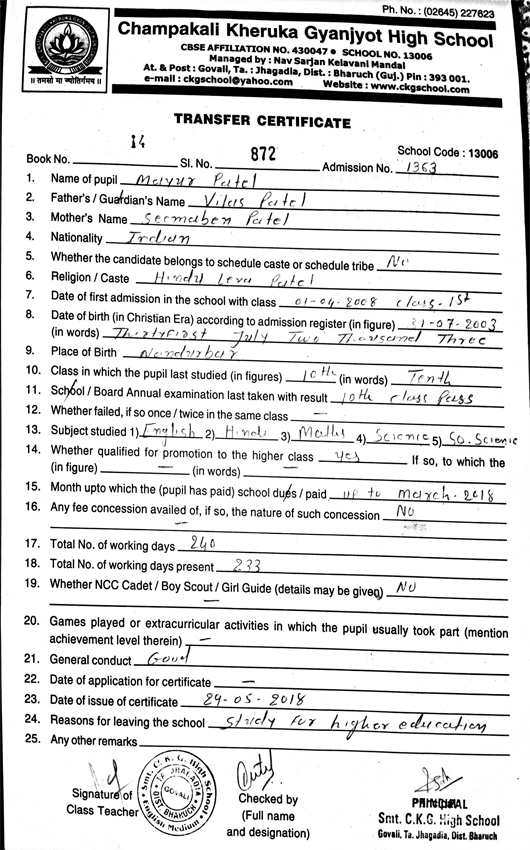 Ph. No. : (02645) 227623
Champakali Kheruka Gyanjyot High School
CBSE AFFILIATION NO. 430047 • SCHOOL NO. 13006
Managed by : Nav Sarjan Kelavani Mandal
At. & Post : Govali, Ta. : Jhagadia, Dist. : Bharuch (Guj.) Pin : 393 001.
e-mail : ckgschool@yahoo.com Website : www.ckgschool.com
|| तमसो मा ज्योतिर्गमय ||
TRANSFER CERTIFICATE
School Code : 13006
Book No. 14 Sl. No. 872 Admission No. 1363
1. Name of pupil Mayur Patel
2. Father's / Guardian's Name Vilas Patel
3. Mother's Name Seemaben Patel
4. Nationality Indian
5. Whether the candidate belongs to schedule caste or schedule tribe No
6. Religion / Caste Hindu Leva Patel
7. Date of first admission in the school with class 01-04-2008 class-1st
8. Date of birth (in Christian Era) according to admission register (in figure) 31-07-2003
(in words) Thirtyfirst July Two Thousand Three
9. Place of Birth Nandurbar
10. Class in which the pupil last studied (in figures) 10th (in words) Tenth
11. School / Board Annual examination last taken with result 10th class Pass
12. Whether failed, if so once / twice in the same class —
13. Subject studied 1) English 2) Hindi 3) Maths 4) Science 5) So. Science
14. Whether qualified for promotion to the higher class yes If so, to which the
(in figure) — (in words) —
15. Month upto which the (pupil has paid) school dues / paid up to March-2018
16. Any fee concession availed of, if so, the nature of such concession No
—
17. Total No. of working days 240
18. Total No. of working days present 233
19. Whether NCC Cadet / Boy Scout / Girl Guide (details may be given) No
—
20. Games played or extracurricular activities in which the pupil usually took part (mention
achievement level therein) —
21. General conduct Good
22. Date of application for certificate —
23. Date of issue of certificate 29-05-2018
24. Reasons for leaving the school study for higher education
25. Any other remarks
Signature of
Class Teacher
Smt. C. K. G. High School
TA. JHAGADIA
GOVALI
DIST. BHARUCH
English Medium
Checked by
(Full name
and designation)
PRINCIPAL
Smt. C.K.G. High School
Govali, Ta. Jhagadia, Dist. Bharuch